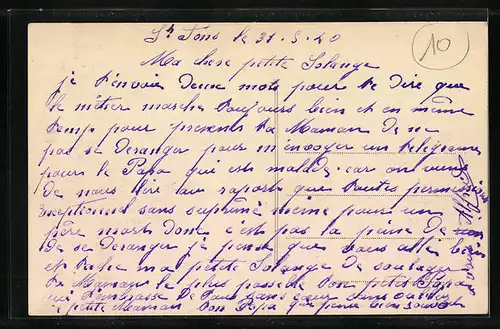 St Fons le 31-5-40
10
Ma chere petite Solange
je t'envoie deux mots pour te dire que
le métier marche toujours bien et en même
temp pour prevenir ta Maman de ne
pas se deranger pour m'envoyer un telegramme
pour le Papa qui est malade car on vien
de nous lire au raport que toutes permi
exceptionel sont suprimé meme pour un
père mort donc c'est pas la peine de
de se deranger je pense que vous allé bien
et tache ma petite Solange de soulager
ta Maman le plus possible ton petit Papa
qui t'embrasse de tout sans coeur sans oublier
la petite Maman ton Papa qui pense bien souvent